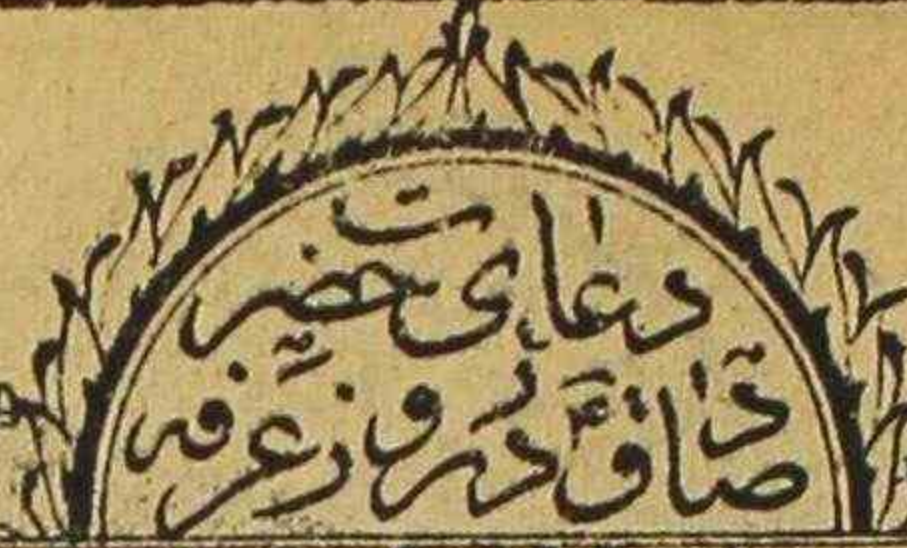 دعای حضرت
صادق ع در روز عرفه